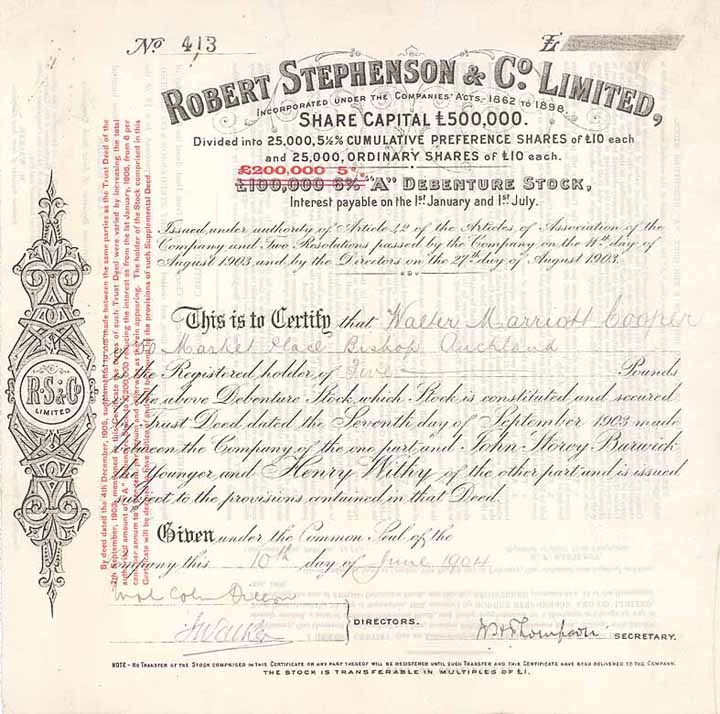 No 413 £
ROBERT STEPHENSON & Co LIMITED,
INCORPORATED UNDER THE COMPANIES' ACTS, 1862 TO 1898.
SHARE CAPITAL £500,000.
Divided into 25,000, 5½% CUMULATIVE PREFERENCE SHARES of £10 each
and 25,000, ORDINARY SHARES of £10 each.
£200,000 5%
£100,000 6% "A" DEBENTURE STOCK,
Interest payable on the 1st January and 1st July.
Issued under authority of Article 42 of the Articles of Association of the
Company and Two Resolutions passed by the Company on the 11th day of
August 1903, and by the Directors on the 27th day of August 1903.
This is to Certify that Walter Marriott Cooper
of 50 Market Place Bishop Auckland
is the Registered holder of Five Pounds
of the above Debenture Stock, which Stock is constituted and secured
by Trust Deed dated the Seventh day of September 1903 made
between the Company of the one part and John Storey Barwick
the Younger and Henry Withy of the other part and is issued
subject to the provisions contained in that Deed.
Given under the Common Seal of the
Company this 10th day of June 1904
DIRECTORS.
W H Thompson SECRETARY.
NOTE - NO TRANSFER OF THE STOCK COMPRISED IN THIS CERTIFICATE OR ANY PART THEREOF WILL BE REGISTERED UNTIL SUCH TRANSFER AND THIS CERTIFICATE HAVE BEEN DELIVERED TO THE COMPANY.
THE STOCK IS TRANSFERABLE IN MULTIPLES OF £1.
R·S & Co
LIMITED
By deed dated the 4th December, 1905, supplemental to and made between the same parties as the Trust Deed of the
7th September, 1903, mentioned in this Certificate the terms of such Trust Deed were varied by increasing the total
authorised amount of "A" Debenture Stock to £200,000 reducing the interest as from the 1st January, 1906, from 6 per
cent. per annum to 5 per cent. per annum and otherwise as therein appearing. The holder of the Stock comprised in this
Certificate will be deemed to have notice of and will be bound by the provisions of such Supplemental Deed.